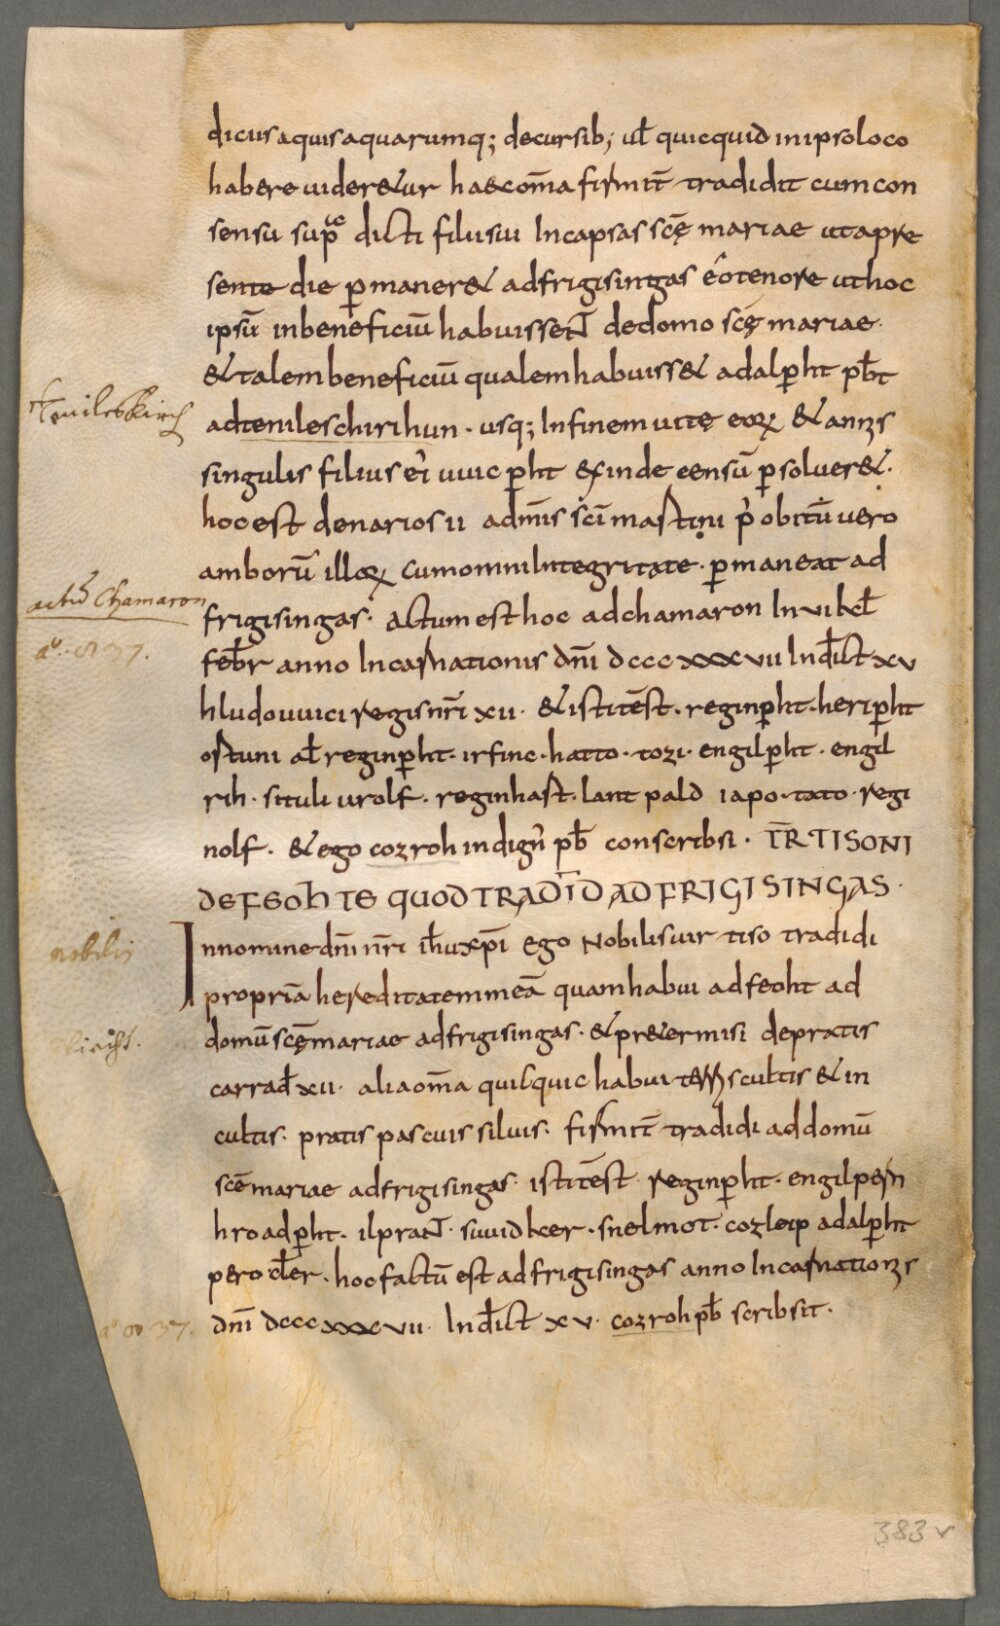 dicuis aquis aquarumq; decursib; ul̄ quicquid in ipso loco
habere uideretur haec om̄a firmit̄ tradidit cum con
sensu sup̄ dicti filii sui In capsas sc̄ę mariae ut a pre
sente die ꝑmaneret ad frigisingas eo tenore ut hoc
ipsū in beneficiū habuissent de domo sc̄ę mariae·
& talem beneficiū qualem habuisset adalꝑht pb̄t
ad teniles chirihun· usq; In finem uitę eoꝝ & annis
singulis filius ei uuicꝑht exinde censū ꝑsolueret·
hoc est denarios ii ad mis sc̄i martini p' obitū uero
amborū illoꝝ cum omni Integritate· ꝑmaneat ad
frigisingas· Actum est hoc ad chamaron In VI kl̄
feb̄r anno Incarnationis dn̄i dcccxxxvii Ind̄ict xv
hludouuici regis nr̄i xii· & isti tēst· reginꝑht· heriꝑht
ostuni al̄ reginꝑht· irfinc· hatto· tozi· engilꝑht· engil
rih· situli urolf· reginhast· lant pald iapo· tato· regi
nolf· & ego cozroh indign' pb̄ conscribsi· TR̄ TISONI
DE FEOHTE QUOD TRADID̄ AD FRIGISINGAS·
In nomine dn̄i nr̄i ih̄u xp̄i ego Nobilis uir tiso tradidi
propriā hereditatem meā quam habui ad feoht ad
domū sc̄ę mariae ad frigisingas· & pretermisi de pratis
carrad̄ xii· alia om̄a quicquic habui terris cultis & in
cultis· pratis pascuis siluis· firmit̄ tradidi ad domū
sc̄ē mariae ad frigisingas· isti tēst· reginꝑht· engilpern
hroadꝑht· ilprant· suuidker· snelmot· cozleip adalꝑht
pero cl̄er· hoc factū est ad frigisingas anno Incarnationis
dn̄i dcccxxxvii· Ind̄ict xv· cozroh pb̄ scribsit·
actū Chamaron
aº· 837.
nobilis
aº 837.
383 v